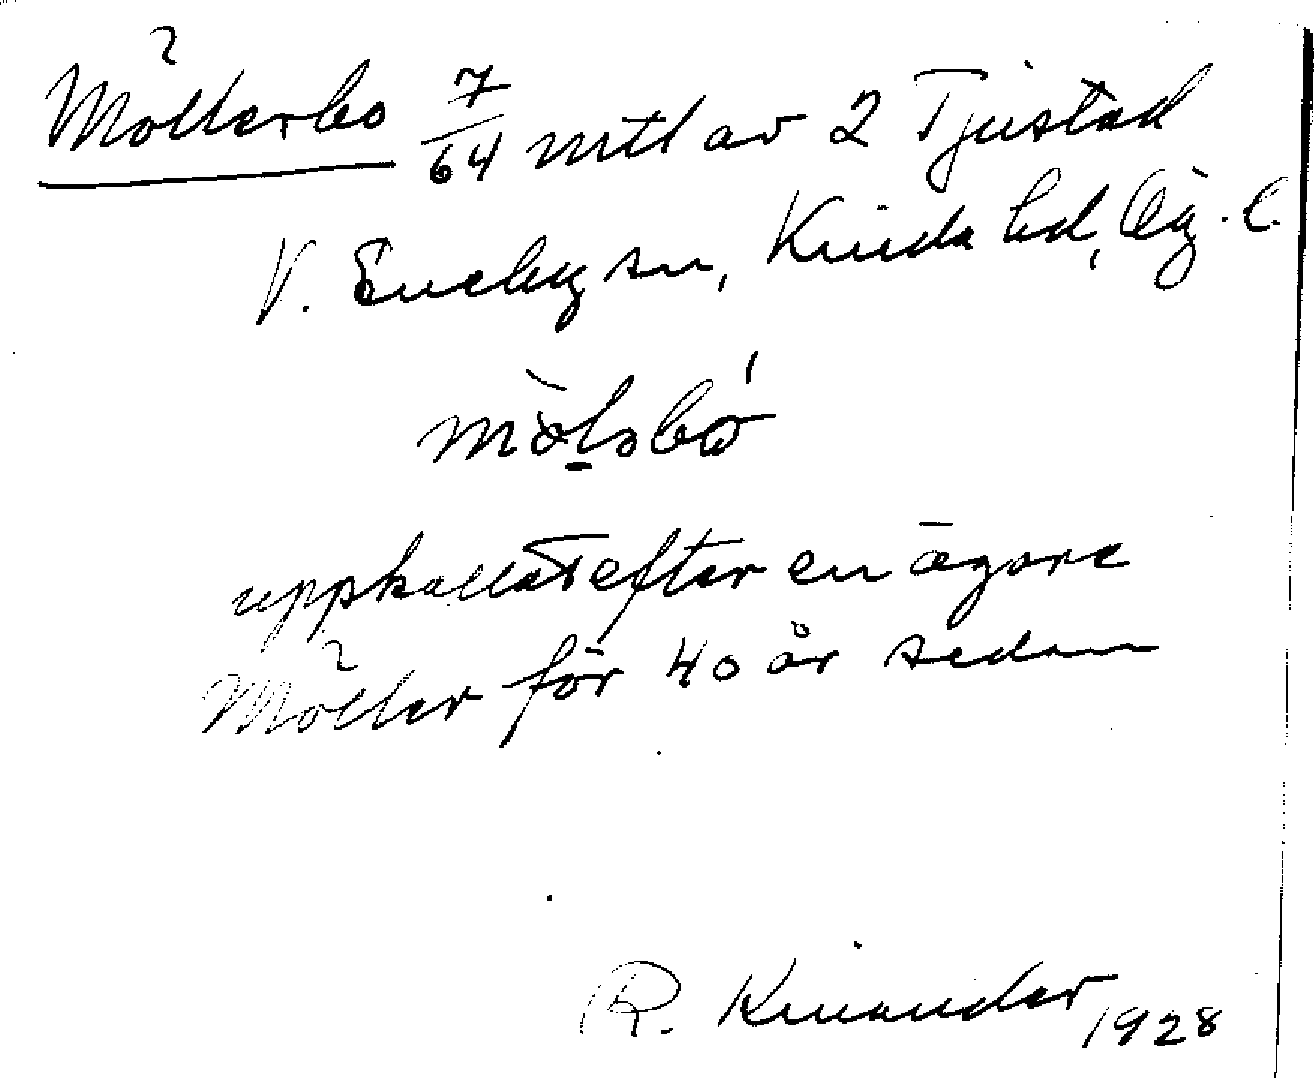 Möllerbo 7/64 mtl av 2 Tjustad
V. Eneby sn, Kinda hd, Ög. l.
mòlsbó
uppkallat efter en ägare
Möller för 40 år sedan
R. Kinander 1928